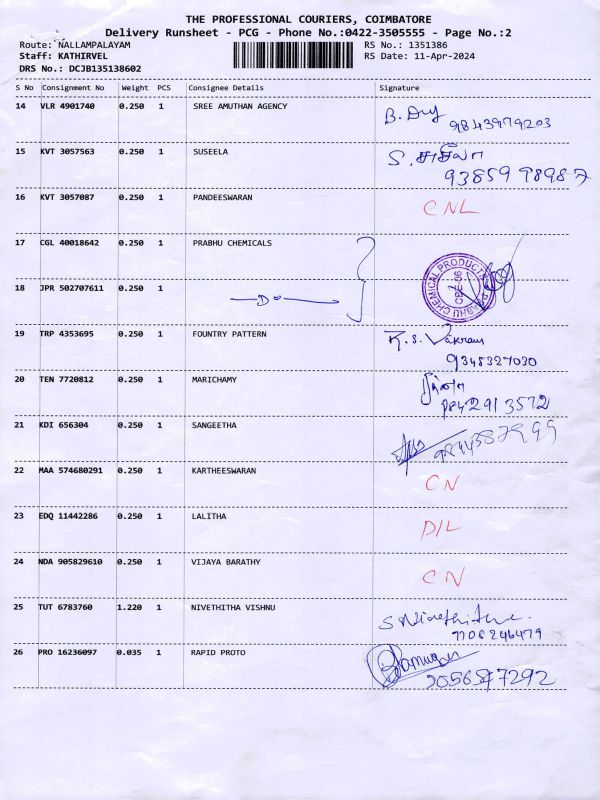 THE PROFESSIONAL COURIERS, COIMBATORE
Delivery Runsheet - PCG - Phone No.:0422-3505555 - Page No.:2
Route: NALLAMPALAYAM RS No.: 1351386
Staff: KATHIRVEL RS Date: 11-Apr-2024
DRS No.: DCJB135138602
S No Consignment No Weight PCS Consignee Details Signature
14 VLR 4901740 0.250 1 SREE AMUTHAN AGENCY
9843979203
15 KVT 3057563 0.250 1 SUSEELA S. சுசிலா
93859 98987
16 KVT 3057087 0.250 1 PANDEESWARAN CNL
17 CGL 40018642 0.250 1 PRABHU CHEMICALS
PRABHU CHEMICAL PRODUCTS
CBE-06
18 JPR 502707611 0.250 1 Do
19 TRP 4353695 0.250 1 FOUNTRY PATTERN R.S. Vikram
9345327030
20 TEN 7720812 0.250 1 MARICHAMY
9842913572
21 KDI 656304 0.250 1 SANGEETHA
22 MAA 574680291 0.250 1 KARTHEESWARAN CN
23 EDQ 11442286 0.250 1 LALITHA D/L
24 NDA 905829610 0.250 1 VIJAYA BARATHY CN
25 TUT 6783760 1.220 1 NIVETHITHA VISHNU S Nivethitha
7708246479
26 PRO 16236097 0.035 1 RAPID PROTO